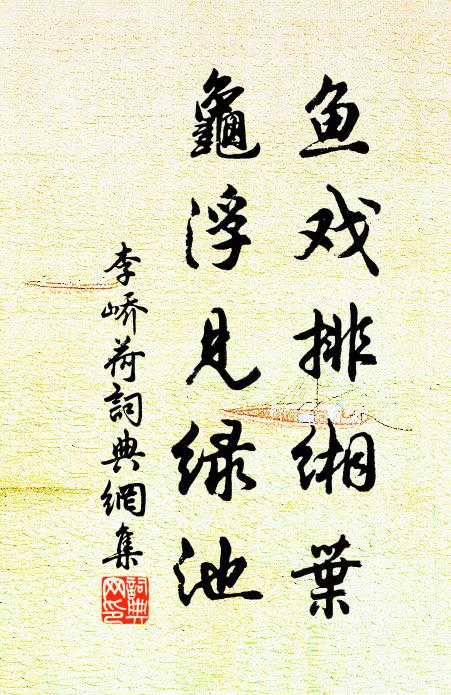 鱼戏排缃葉
龜浮见绿池
李峤荷詞典網集
詞典网印